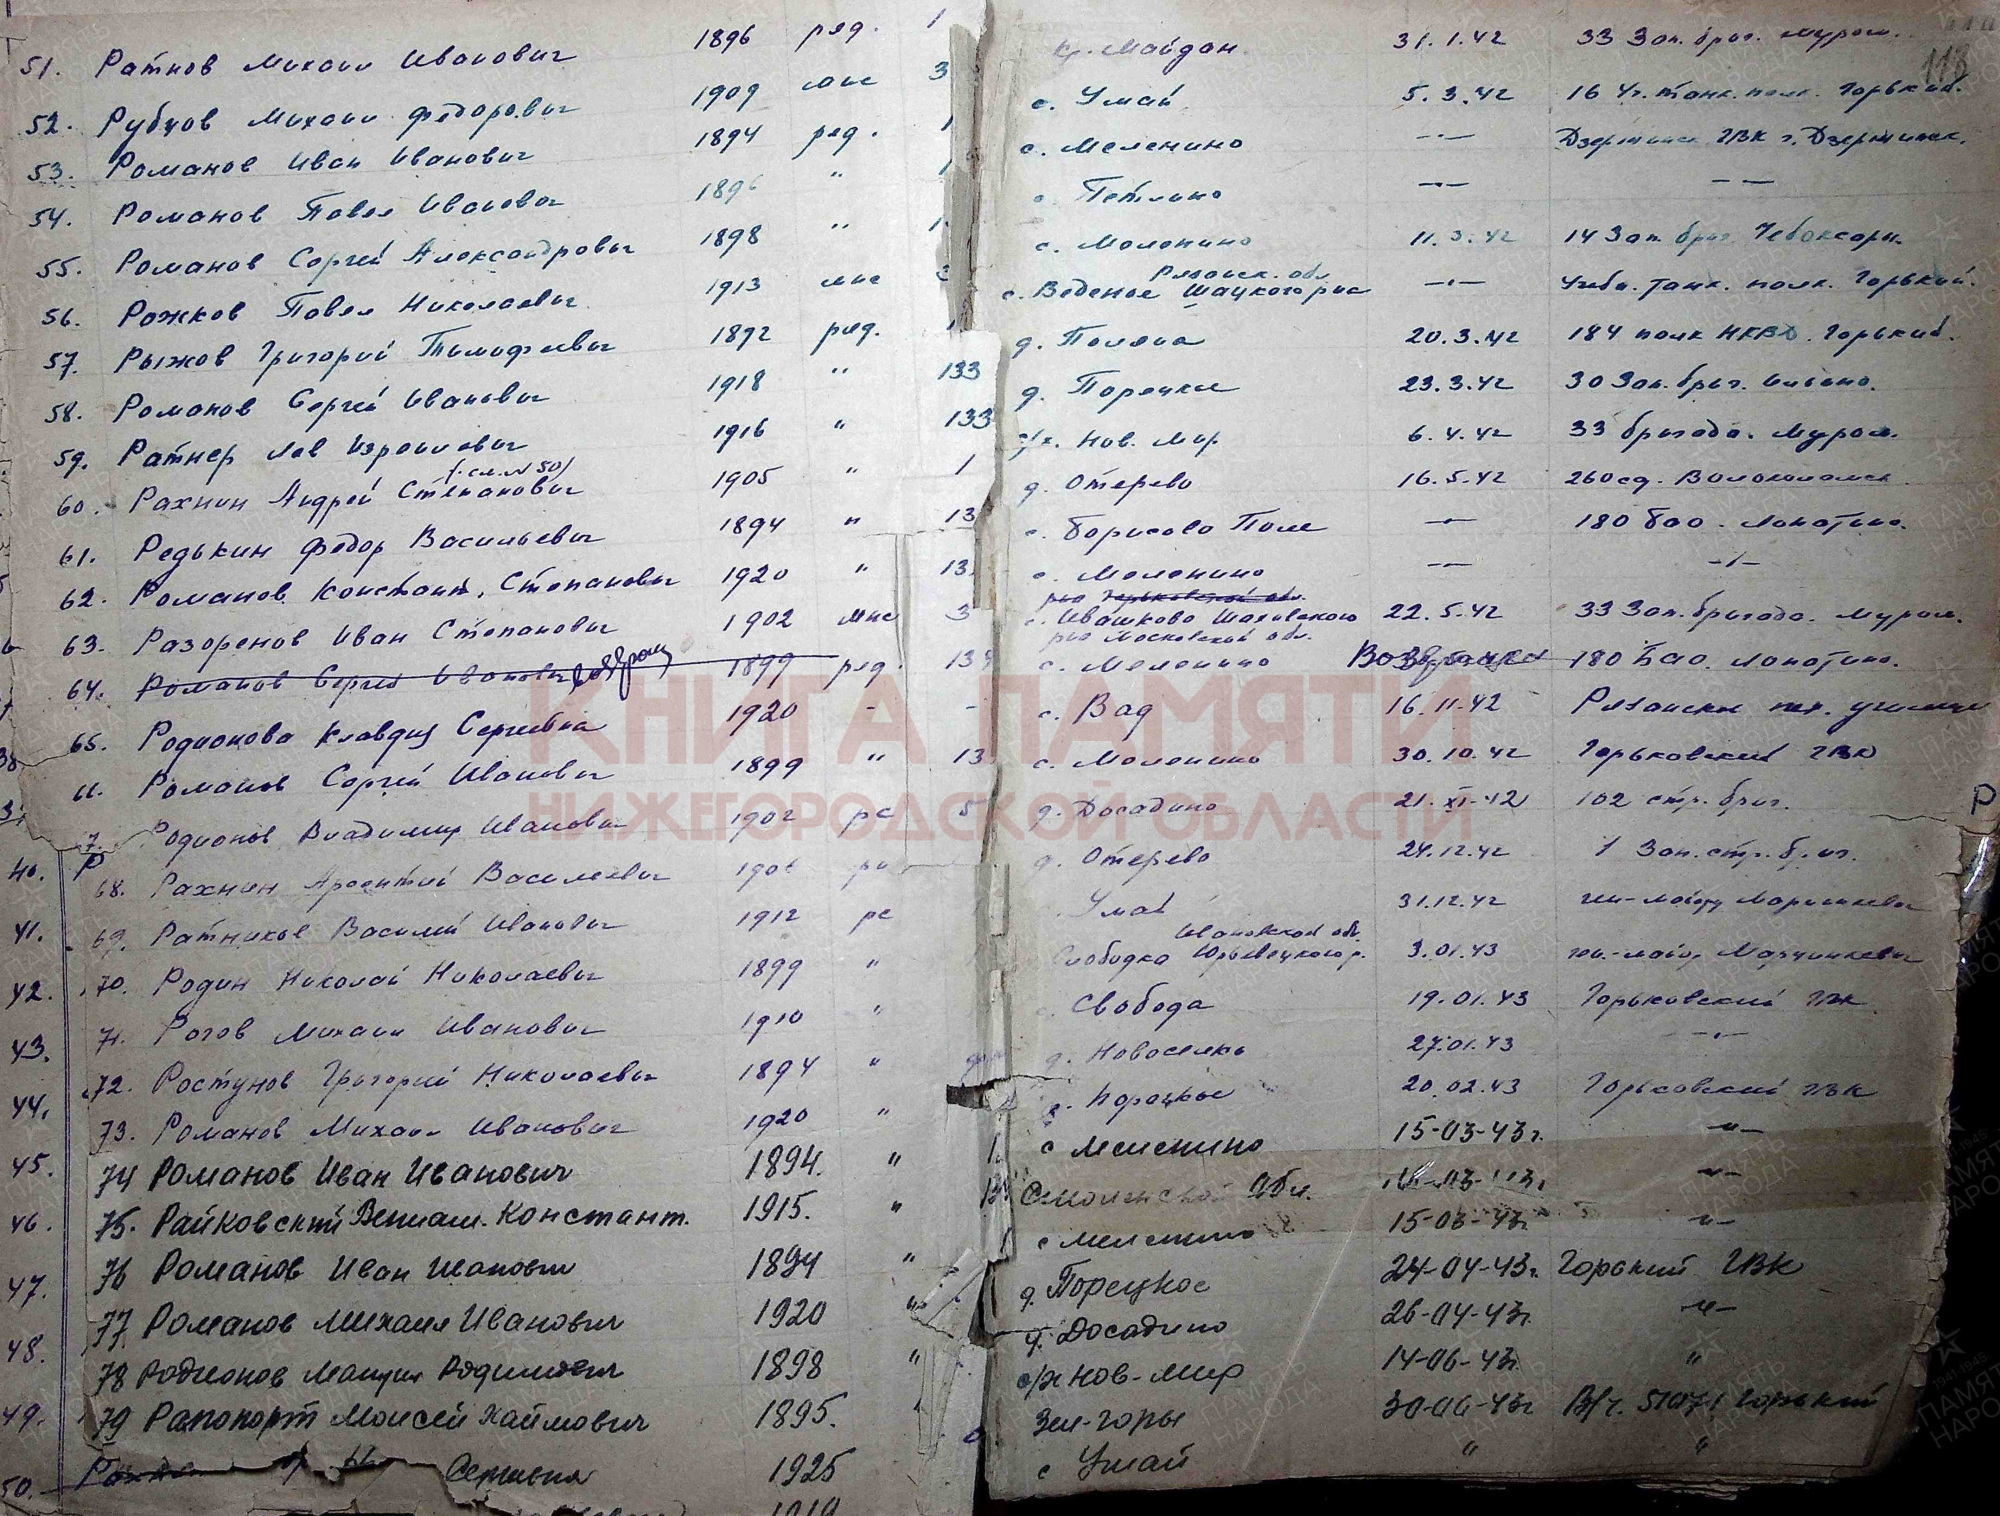 118
51. Ратнов Михаил Иванович 1896 ряд. 1 Кр. Майдан 31.1.42 33 Зап. бриг. Муром.
52. Рубцов Михаил Федорович 1909 мнс 3 с. Умай 5.3.42 16 Уч. танк. полк. Горький.
53. Романов Иван Иванович 1894 ряд. 1 с. Меленино —"— Дзержинск ГВК г. Дзержинск.
54. Романов Павел Иванович 1896 " 1 с. Петлино —"— — —
55. Романов Сергей Александрович 1898 " 1 с. Меленино 11.3.42 14 Зап. бриг. Чебоксары.
56. Рожков Павел Николаевич 1913 мнс 3 с. Веденое Шацкого р-на Рязанск. обл. —"— Учебн. танк. полк. Горький.
57. Рыжов Григорий Тимофеевич 1892 ряд. 1 д. Поляна 20.3.42 184 полк НКВД. Горький.
58. Романов Сергей Иванович 1918 " 133 д. Порецкие 23.3.42 30 Зап. бриг.
59. Ратнер Лев Израилевич 1916 " 133 с/х. Нов. Мир 6.4.42 33 бригада. Муром.
60. Рахнин Андрей Степанович (см. № 50) 1905 " 1 д. Отерево 16.5.42 260 сд. Волоколамск
61. Редькин Федор Васильевич 1894 " 13 с. Борисово Поле —"— 180 бао. Лопатино.
62. Романов Констант. Степанович 1920 " 13 с. Меленино —"— —"—
63. Разоренов Иван Степанович 1902 мнс 3 с. Ивашково Шаховского р-на Московской обл. 22.5.42 33 Зап. бригада. Муром.
64. Романов Сергей Иванович возвращ 1899 ряд. 133 с. Меленино Возвращен 180 бао. Лопатино.
65. Родионова Клавдия Сергеевна 1920 - - с. Вад 16.11.42 Рязанское пех. училище
66. Романов Сергей Иванович 1899 " 13 с. Меленино 30.10.42 Горьковский ГВК
7. Родионов Владимир Иванович 1902 рс 5 д. Досадино 21.XI-42 102 стр. бриг. Р
Р 68. Рахнин Арсентий Василевич 190 д. Отерево 24.12.42 1 Зап. стр. бриг.
69. Ратников Василий Иванович 1912 рс Умай 31.12.42 ген-майору
70. Родин Николай Николаевич 1899 " Слободка Юрьевецкого р. Ивановской обл. 3.01.43 ген.-майор
71. Рогов Михаил Иванович 1910 " Свобода 19.01.43 Горьковский ГВК
72. Ростунов Григорий Николаевич 1894 " д. Новоселки 27.01.43 —"—
73. Романов Михаил Иванович 1920 " д. Порецкое 20.02.43 Горьковский ГВК
74 Романов Иван Иванович 1894. " 1. с Меленино 15-03-43г. —"—
75. Райковский Вениам. Констант. 1915. " 133 Смоленской Обл. —"—
76 Романов Иван Иванович 1894 " 1 с Меленино 15-03-43г —"—
77 Романов Михаил Иванович 1920 " д. Порецкое 24-04-43г. Горький ГВК
78 Родионов Родионович 1898 " д. Досадино 26-04-43г. —"—
79 Рапопорт Моисей Хаймович 1895. с/х Нов-Мир 14-06-43г. "
Сергеевич 1925 Зел-Горы 30-06-43г В/ч. 51071 Горький
1919 с Умай " "
40.
41.
42.
43.
44.
45.
46.
47.
48.
49.
50.
КНИГА ПАМЯТИ
НИЖЕГОРОДСКОЙ ОБЛАСТИ
ПАМЯТЬ НАРОДА
1941-1945